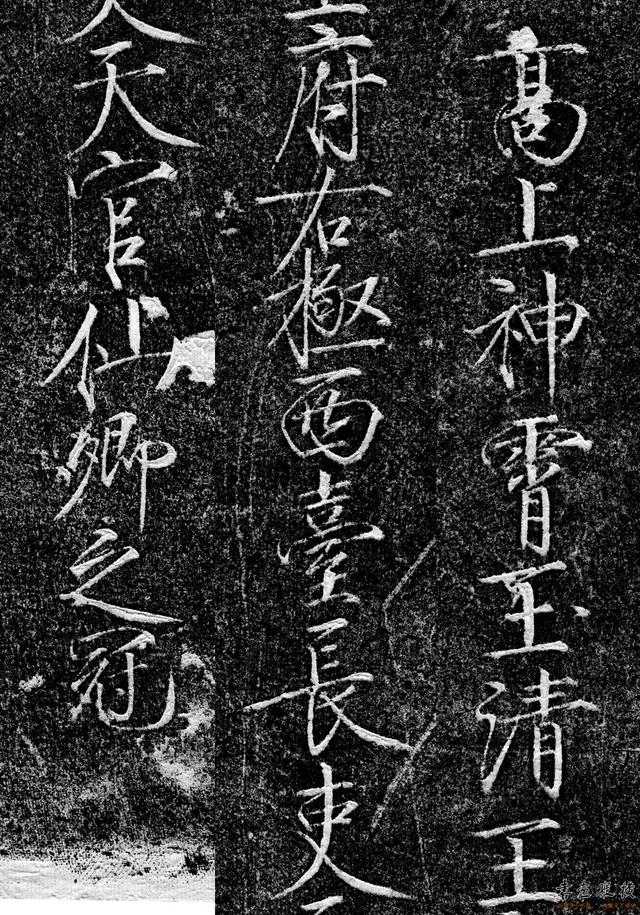 高上神霄玉清王
府右極西臺長吏
天官仙卿之冠